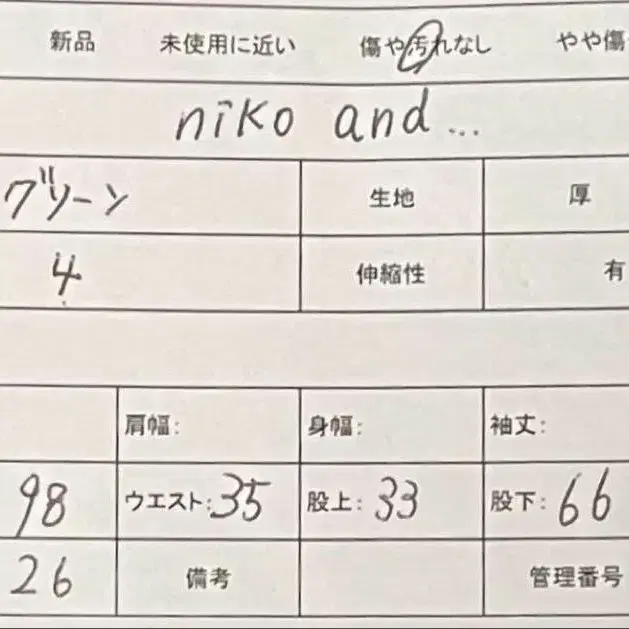 新品 未使用に近い 傷や汚れなし やや傷
niko and...
グリーン 生地 厚
4 伸縮性 有
肩幅: 身幅: 袖丈:
98 ウエスト:35 股上:33 股下:66
26 備考 管理番号